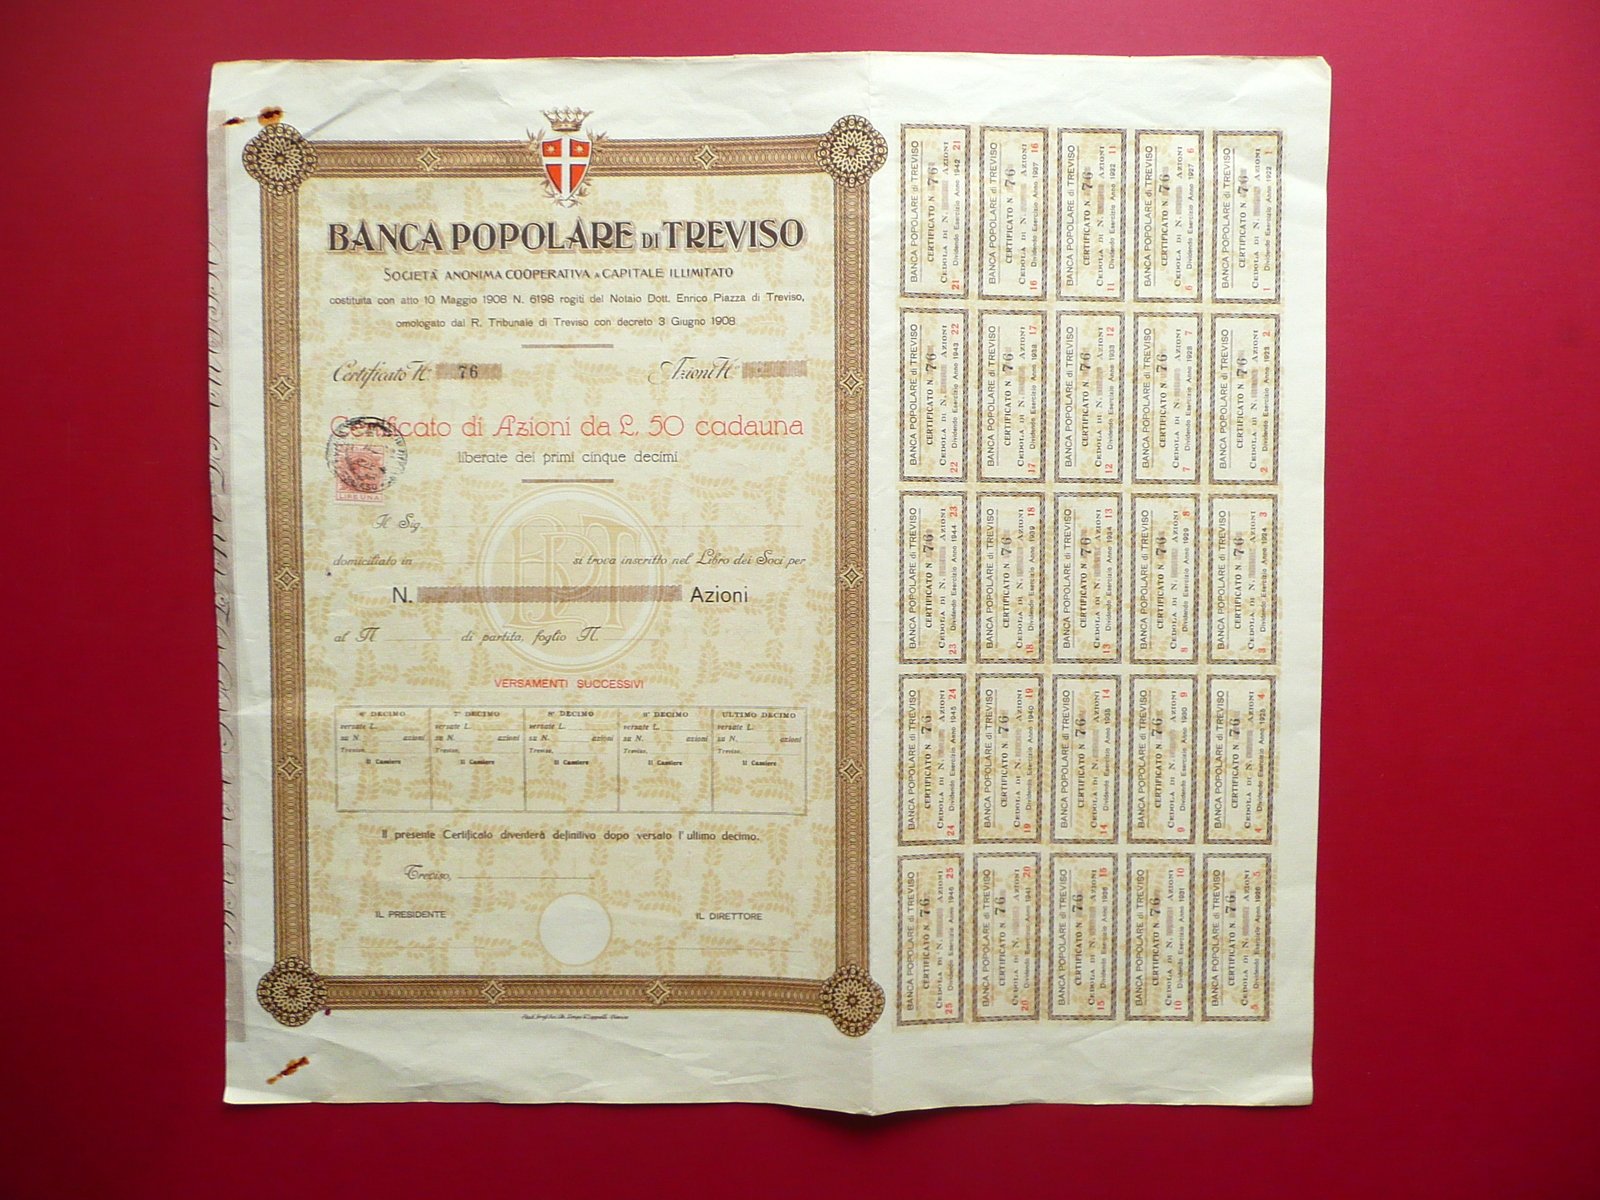 BANCA POPOLARE DI TREVISO
SOCIETÀ ANONIMA COOPERATIVA A CAPITALE ILLIMITATO
costituita con atto 10 Maggio 1908 N. 6198 rogiti del Notaio Dott. Enrico Piazza di Treviso,
omologato dal R. Tribunale di Treviso con decreto 3 Giugno 1908
Certificato N. 76 Azioni N.
Certificato di Azioni da L. 50 cadauna
liberate dei primi cinque decimi
LIRE UNA
Il Sig.
domiciliato in si trova inscritto nel Libro dei Soci per
N. Azioni
al N. di partita, foglio N.
VERSAMENTI SUCCESSIVI
6° DECIMO 7° DECIMO 8° DECIMO 9° DECIMO ULTIMO DECIMO
versate L. versate L. versate L. versate L. versate L.
su N. azioni su N. azioni su N. azioni su N. azioni su N. azioni
Treviso, Treviso, Treviso, Treviso, Treviso,
Il Cassiere Il Cassiere Il Cassiere Il Cassiere Il Cassiere
Il presente Certificato diventerà definitivo dopo versato l'ultimo decimo.
Treviso,
IL PRESIDENTE IL DIRETTORE
BANCA POPOLARE di TREVISO
CERTIFICATO N. 76
CEDOLA DI N. AZIONI
21 Dividendo Esercizio Anno 1942 21
BANCA POPOLARE di TREVISO
CERTIFICATO N. 76
CEDOLA DI N. AZIONI
16 Dividendo Esercizio Anno 1937 16
BANCA POPOLARE di TREVISO
CERTIFICATO N. 76
CEDOLA DI N. AZIONI
11 Dividendo Esercizio Anno 1932 11
BANCA POPOLARE di TREVISO
CERTIFICATO N. 76
CEDOLA DI N. AZIONI
6 Dividendo Esercizio Anno 1927 6
BANCA POPOLARE di TREVISO
CERTIFICATO N. 76
CEDOLA DI N. AZIONI
1 Dividendo Esercizio Anno 1922 1
BANCA POPOLARE di TREVISO
CERTIFICATO N. 76
CEDOLA DI N. AZIONI
22 Dividendo Esercizio Anno 1943 22
BANCA POPOLARE di TREVISO
CERTIFICATO N. 76
CEDOLA DI N. AZIONI
17 Dividendo Esercizio Anno 1938 17
BANCA POPOLARE di TREVISO
CERTIFICATO N. 76
CEDOLA DI N. AZIONI
12 Dividendo Esercizio Anno 1933 12
BANCA POPOLARE di TREVISO
CERTIFICATO N. 76
CEDOLA DI N. AZIONI
7 Dividendo Esercizio Anno 1928 7
BANCA POPOLARE di TREVISO
CERTIFICATO N. 76
CEDOLA DI N. AZIONI
2 Dividendo Esercizio Anno 1923 2
BANCA POPOLARE di TREVISO
CERTIFICATO N. 76
CEDOLA DI N. AZIONI
23 Dividendo Esercizio Anno 1944 23
BANCA POPOLARE di TREVISO
CERTIFICATO N. 76
CEDOLA DI N. AZIONI
18 Dividendo Esercizio Anno 1939 18
BANCA POPOLARE di TREVISO
CERTIFICATO N. 76
CEDOLA DI N. AZIONI
13 Dividendo Esercizio Anno 1934 13
BANCA POPOLARE di TREVISO
CERTIFICATO N. 76
CEDOLA DI N. AZIONI
8 Dividendo Esercizio Anno 1929 8
BANCA POPOLARE di TREVISO
CERTIFICATO N. 76
CEDOLA DI N. AZIONI
3 Dividendo Esercizio Anno 1924 3
BANCA POPOLARE di TREVISO
CERTIFICATO N. 76
CEDOLA DI N. AZIONI
24 Dividendo Esercizio Anno 1945 24
BANCA POPOLARE di TREVISO
CERTIFICATO N. 76
CEDOLA DI N. AZIONI
19 Dividendo Esercizio Anno 1940 19
BANCA POPOLARE di TREVISO
CERTIFICATO N. 76
CEDOLA DI N. AZIONI
14 Dividendo Esercizio Anno 1935 14
BANCA POPOLARE di TREVISO
CERTIFICATO N. 76
CEDOLA DI N. AZIONI
9 Dividendo Esercizio Anno 1930 9
BANCA POPOLARE di TREVISO
CERTIFICATO N. 76
CEDOLA DI N. AZIONI
4 Dividendo Esercizio Anno 1925 4
BANCA POPOLARE di TREVISO
CERTIFICATO N. 76
CEDOLA DI N. AZIONI
25 Dividendo Esercizio Anno 1946 25
BANCA POPOLARE di TREVISO
CERTIFICATO N. 76
CEDOLA DI N. AZIONI
20 Dividendo Esercizio Anno 1941 20
BANCA POPOLARE di TREVISO
CERTIFICATO N. 76
CEDOLA DI N. AZIONI
15 Dividendo Esercizio Anno 1936 15
BANCA POPOLARE di TREVISO
CERTIFICATO N. 76
CEDOLA DI N. AZIONI
10 Dividendo Esercizio Anno 1931 10
BANCA POPOLARE di TREVISO
CERTIFICATO N. 76
CEDOLA DI N. AZIONI
5 Dividendo Esercizio Anno 1926 5